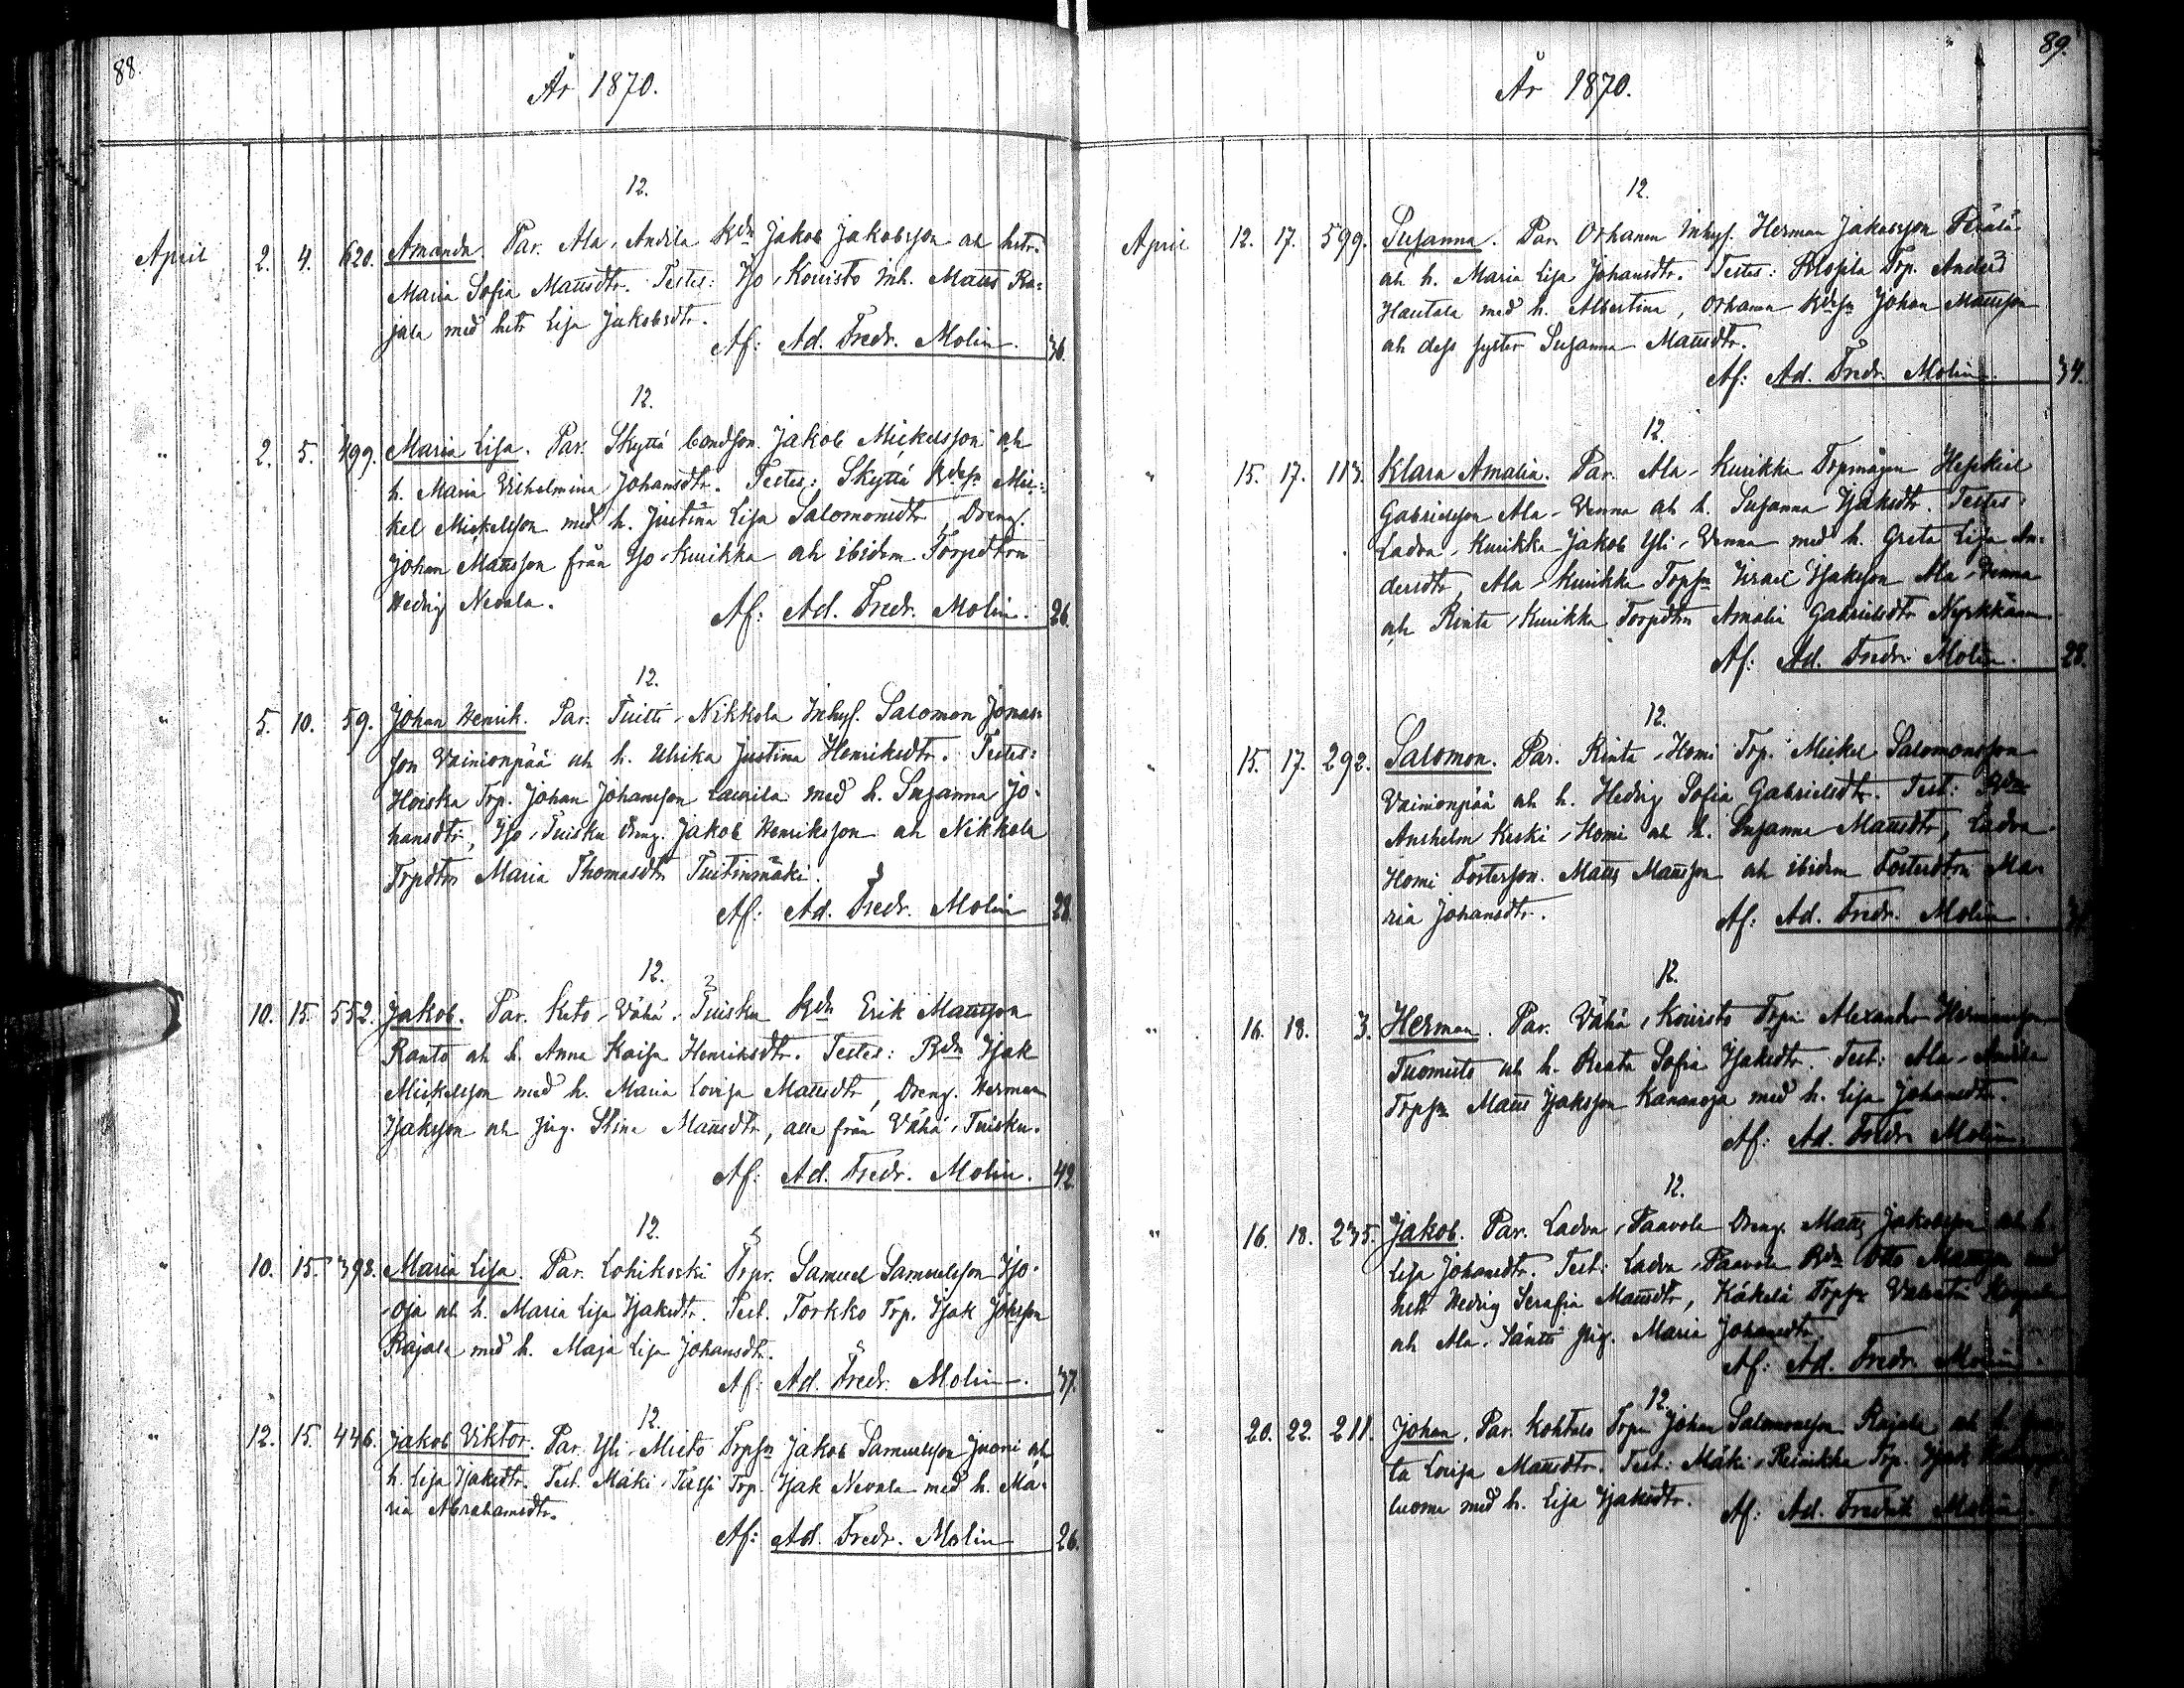 88.
År 1870.
12.
April 2. 4. 620. Amanda. Par. Ala-Andila Kdn Jakob Jakobsson och hstr.
Maria Sofia Mattsdtr. Testes: Iso-Kouisto Inh. Matts Ra-
jala med hstr Lisa Jakobsdtr.
Af: Ad. Fredr. Molin. 36.
12.
" 2. 5. 499. Maria Lisa. Par. Skyttä bondson Jakob Mickelsson och
h. Maria Vilhelmina Johansdtr. Testes: Skyttä Bdesn Mic-
kel Mickelsson med h. Justina Lisa Salomonsdtr, Dreng.
Johan Mattsson från Iso-Kurikka och ibidem Torpdtrn
Hedvig Nevala.
Af: Ad. Fredr. Molin. 26.
12.
" 5. 10. 59. Johan Henrik. Par. Tuitti-Nikkola Inhys. Salomon Jonas-
son Vainionpää och h. Ulrika Justina Henriksdtr. Testes:
Hoiska Trp. Johan Johansson Laurila med h. Susanna Jo-
hansdtr, Iso-Tuisku Dreng. Jakob Henriksson och Nikkola
Trpdtrn Maria Thomasdtr Tuitinmäki.
Af: Ad. Fredr. Molin 28.
12.
10. 15. 552. Jakob. Par. Keto-Vähä-Tuisku Kdn Erik Mattsson
Ranto och h. Anna Kaisa Henriksdtr. Testes: Bdn Isak
Mickelsson med h. Maria Lovisa Mattsdtr, Dreng. Herman
Isaksson och Pig. Stina Mattsdtr, alla från Vähä-Tuisku.
Af: Ad. Fredr. Molin. 42.
12.
" 10. 15. 398. Maria Lisa. Par. Lohikoski Trpr. Samuel Samuelsson Iso-
oja och h. Maria Lisa Isaksdtr. Test. Torkko Trp. Isak Johsson
Rajala med h. Maja Lisa Johansdtr.
Af: Ad. Fredr. Molin. 37.
12.
" 12. 15. 446. Jakob Viktor. Par. Yli-Mieto Trpsn Jakob Samuelsson Juoni och
h. Lisa Isaksdtr. Test. Mäki-Passi Trp. Isak Nevala med h. Ma-
ria Abrahamsdtr.
Af: Ad. Fredr. Molin 26.
89.
År 1870.
12.
April 12. 17. 599. Susanna. Par. Orhanen Inhys. Herman Jakobsson Perälä
och h. Maria Lisa Johansdtr. Testes: Trp. Anders
Hautala med h. Albertina, Orhanen Bdesn Johan Mattsson
och dess syster Susanna Mattsdtr.
Af: Ad. Fredr. Molin. 34.
12.
" 15. 17. 113. Klara Amalia. Par. Ala-Kurikka Torpmågen Heskiel
Gabrielsson Ala-Venna och h. Susanna Isaksdtr. Testes:
Ladva-Kurikka Jakob Yli-Venna med h. Greta Lisa An-
dersdtr, Ala-Kurikka Trpsn Israel Isaksson Ala-Venna
och Rinta-Kurikka Torpdtrn Amalia Gabrielsdtr
Af: Ad. Fredr. Molin. 28.
12.
" 15. 17. 292. Salomon. Par. Rinta-Homi Trp. Mickel Salomonsson
Vainionpää och h. Hedvig Sofia Gabrielsdtr. Test: Bdn
Anshelm Keski-Homi och h. Susanna Mattsdtr, Ladva-
Homi Fosterson. Matts Mattsson och ibidem Fosterdtrn Ma-
ria Johansdtr.
Af: Ad. Fredr. Molin.
12.
" 16. 18. 3. Herman. Par. Vähä-Kouisto Trpr. Alexander Hermansson
Tuomisto och h. Beata Sofia Isaksdtr. Test: Ala-Andila
Trpsn Matts Isaksson Kananoja med h. Lisa Johansdtr.
Af: Ad. Fredr. Molin.
12.
" 16. 18. 235. Jakob. Par. Ladva-Paavola Dreng. Matts Jakobsson och h.
Lisa Johansdtr. Test: Ladva-Paavola Bdn Otto Mattsson med
hstr Hedvig Serafia Mattsdtr, Käkelä Trpsn
och Ala-Säntti Pig. Maria Johansdtr.
Af: Ad. Fredr. Molin.
12.
20. 22. 211. Johan. Par. Kohtala Trpr Johan Salomonsson Rajala och h.
ta Lovisa Mattsdtr. Test: Mäki-Reinikka Trp. Isak
luoma med h. Lisa Isaksdtr.
Af: Ad. Fredrik Molin.